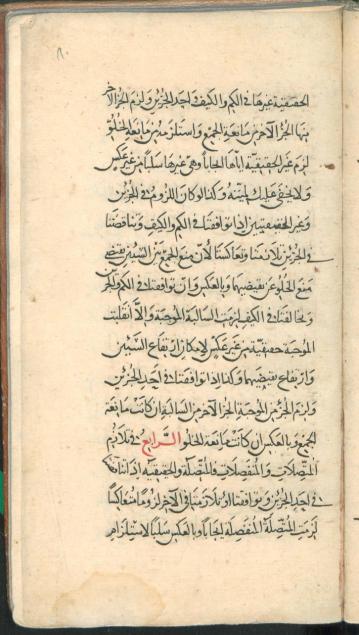 الحقيقية غيرها في الكم والكيف في احد الجزئين ولزم الجزء الآخر
منها الجزء الآخر من مانعة الجمع واستلزمه من مانعة الخلو
لزم غير الحقيقية اياها ايجابا وهي غيرها سلبا من غير عكس
ولا يخفى عليك لميته وكذا لو كان اللزوم في الجزئين
وغير الحقيقيتين اذا توافقتا في الكم والكيف وتناقضتا
في الجزئين تلازمتا وتعاكستا لأن منع الجمع بين الشيئين يقتضي
منع الخلو عن نقيضيهما وبالعكس وان توافقتا في الكم والجزء
وتخالفتا في الكيف لزمت السالبة الموجبة والا انقلبت
الموجبة حقيقية من غير عكس لامكان ارتفاع الشيئين
وارتفاع نقيضيهما وكذا اذا توافقتا في احد الجزئين
ولزم الجزء من الموجبة الجزء الآخر من السالبة ان كانت مانعة
الجمع وبالعكس ان كانت مانعة الخلو الرابع في تلازم
المتصلات والمنفصلات فالمتصلة والحقيقية اذا
في احد الجزئين وتوافقتا او تلازمتا في الآخر لزوما متعاكسا
لزمت المتصلة المنفصلة ايجابا وبالعكس سلبا لاستلزام